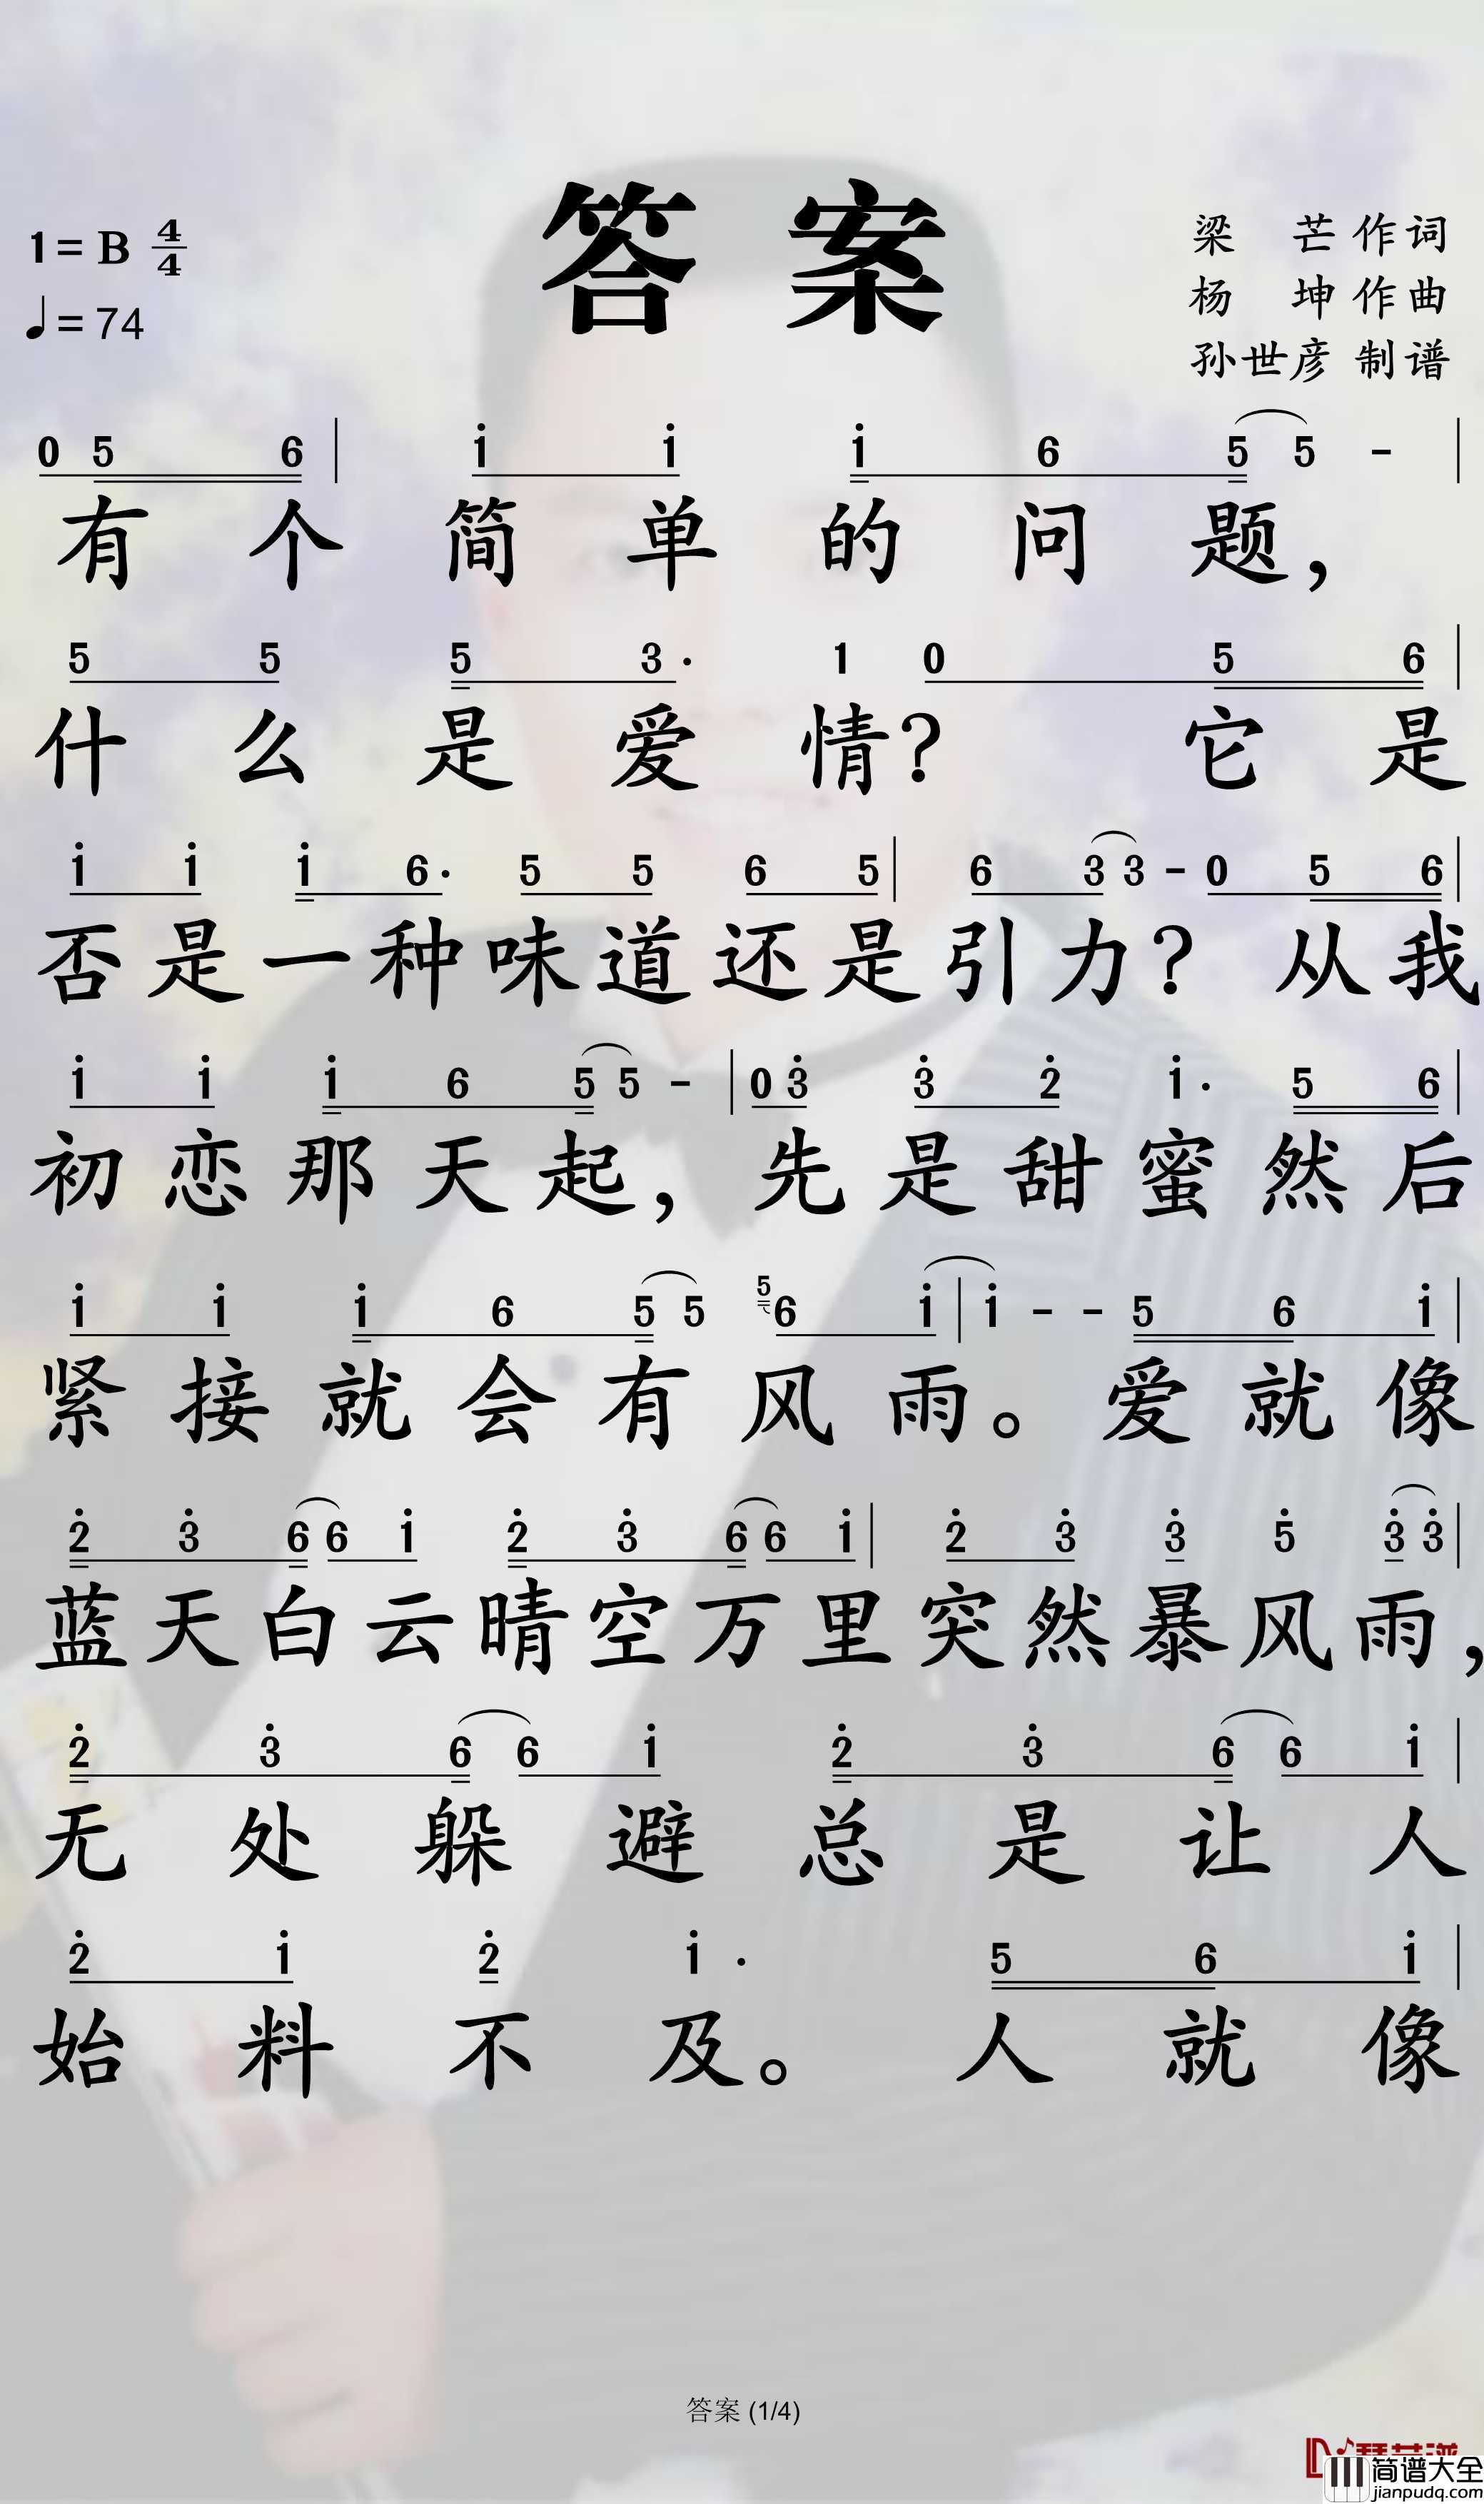 答案
1=B 4/4
♩=74
梁 芒 作词
杨 坤 作曲
孙世彦 制谱
0 5 6 | i i i 6 5 5 - |
有个简单的问题，
5 5 5 3· 1 0 5 6 |
什么是爱情？ 它是
i i i 6· 5 5 6 5 | 6 3 3 - 0 5 6 |
否是一种味道还是引力？从我
i i i 6 5 5 - | 0 3̇ 3̇ 2̇ i· 5 6 |
初恋那天起，先是甜蜜然后
i i i 6 5 5 5 6 i | i - - 5 6 i |
紧接就会有风雨。爱就像
2̇ 3̇ 6 6 i 2̇ 3̇ 6 6 i | 2̇ 3̇ 3̇ 5̇ 3̇ 3̇ |
蓝天白云晴空万里突然暴风雨，
2̇ 3̇ 6 6 i 2̇ 3̇ 6 6 i |
无处躲避总是让人
2̇ i 2̇ i· 5 6 i |
始料不及。 人就像
答案 (1/4)
简谱大全
jianpudq.com